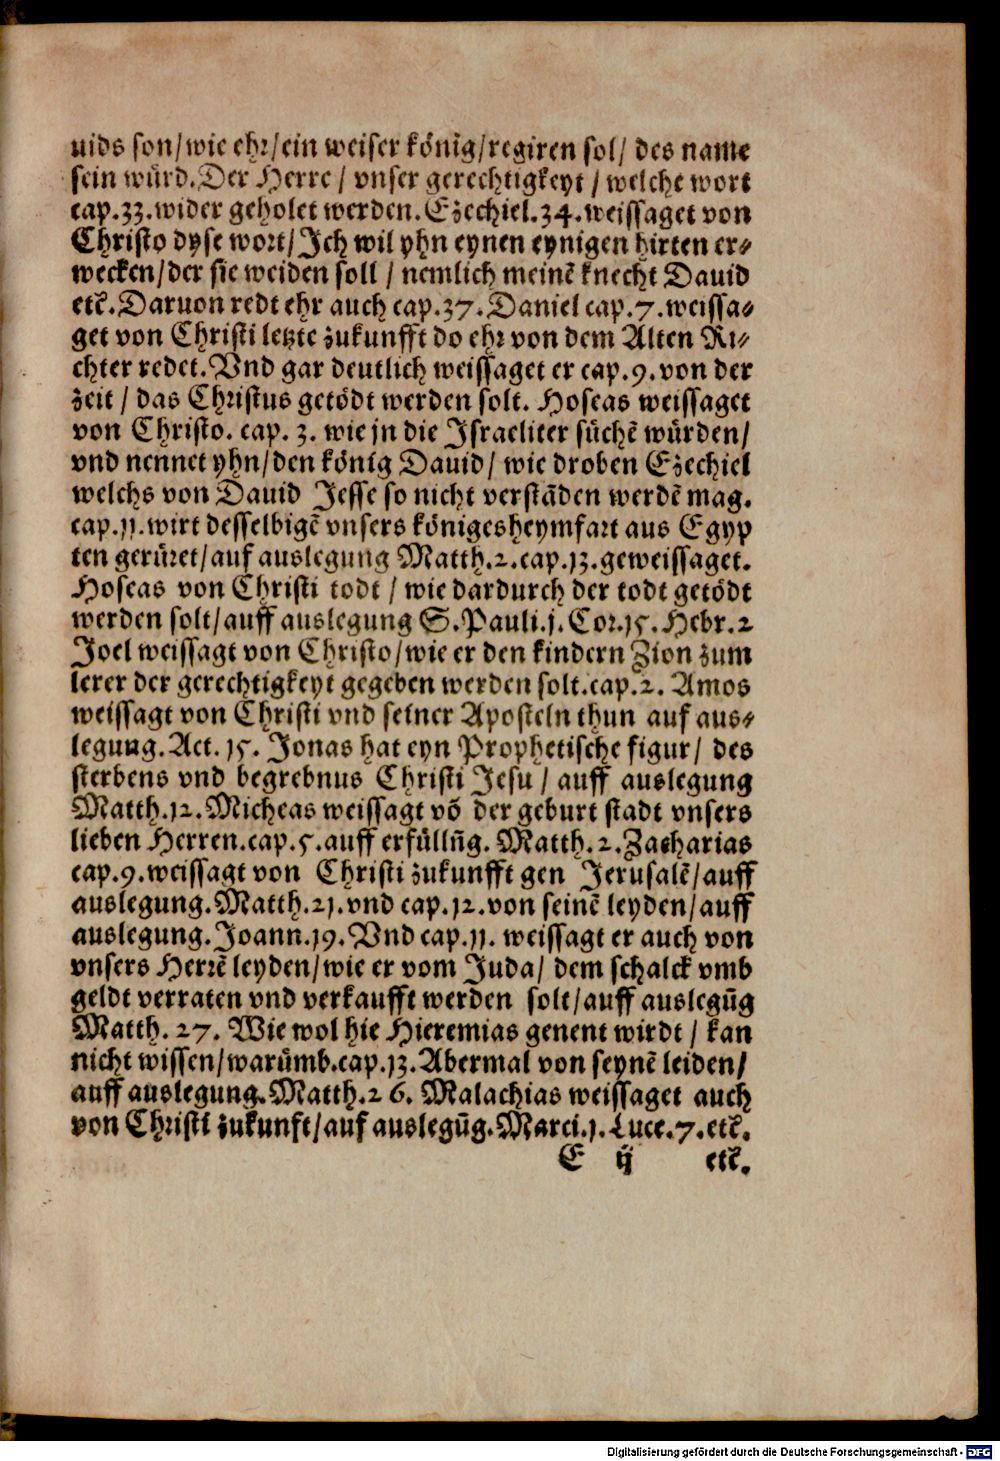 uids son/wie ehr/ein weiser könig/regiren sol/ des name
sein würd. Der Herre / vnser gerechtigkeyt / welche wort
cap.33.wider geholet werden. Ezechiel.34.weissaget von
Christo dyse wort/ Jch wil yhn eynen eynigen hirten er⸗
wecken/der sie weiden soll / nemlich meinē knecht Dauid
etc̄. Daruon redt ehr auch cap.37. Daniel cap.7.weissa⸗
get von Christi letzte zukunfft do ehr von dem Alten Ri⸗
chter redet. Vnd gar deutlich weissaget er cap.9.von der
zeit / das Christus getödt werden solt. Hoseas weissaget
von Christo. cap. 3. wie jn die Jsraeliter süchē würden/
vnd nennet yhn/den könig Dauid/ wie droben Ezechiel
welchs von Dauid Jesse so nicht verstāden werdē mag.
cap.11.wirt desselbigē vnsers königesheymfart aus Egyp
ten gerüret/auf auslegung Matth.2.cap.13.geweissaget.
Hoseas von Christi todt / wie dardurch der todt getödt
werden solt/auff auslegung S. Pauli.j. Cor.15. Hebr.2
Joel weissagt von Christo/wie er den kindern Zion zum
lerer der gerechtigkeyt gegeben werden solt.cap.2. Amos
weissagt von Christi vnd seiner Aposteln thun auf aus⸗
legung. Act. 15. Jonas hat eyn Prophetische figur/ des
sterbens vnd begrebnus Christi Jesu / auff auslegung
Matth.12. Micheas weissagt vō der geburt stadt vnsers
lieben Herren.cap.5.auff erfüllūg. Matth.2. Zacharias
cap.9.weissagt von Christi zukunfft gen Jerusalē/auff
auslegung. Matth.21.vnd cap.12.von seinē leyden/auff
auslegung. Joann.19. Vnd cap.11. weissagt er auch von
vnsers Herrē leyden/wie er vom Juda/ dem schalck vmb
geldt verraten vnd verkaufft werden solt/auff auslegūg
Matth. 27. Wie wol hie Hieremias genent wirdt / kan
nicht wissen/warümb.cap.13. Abermal von seynē leiden/
auff auslegung. Matth.26. Malachias weissaget auch
von Christi zukunft/auf auslegūg. Marci.1. Luce.7.etc̄.
E ij etc̄.
Digitalisierung gefördert durch die Deutsche Forschungsgemeinschaft - DFG